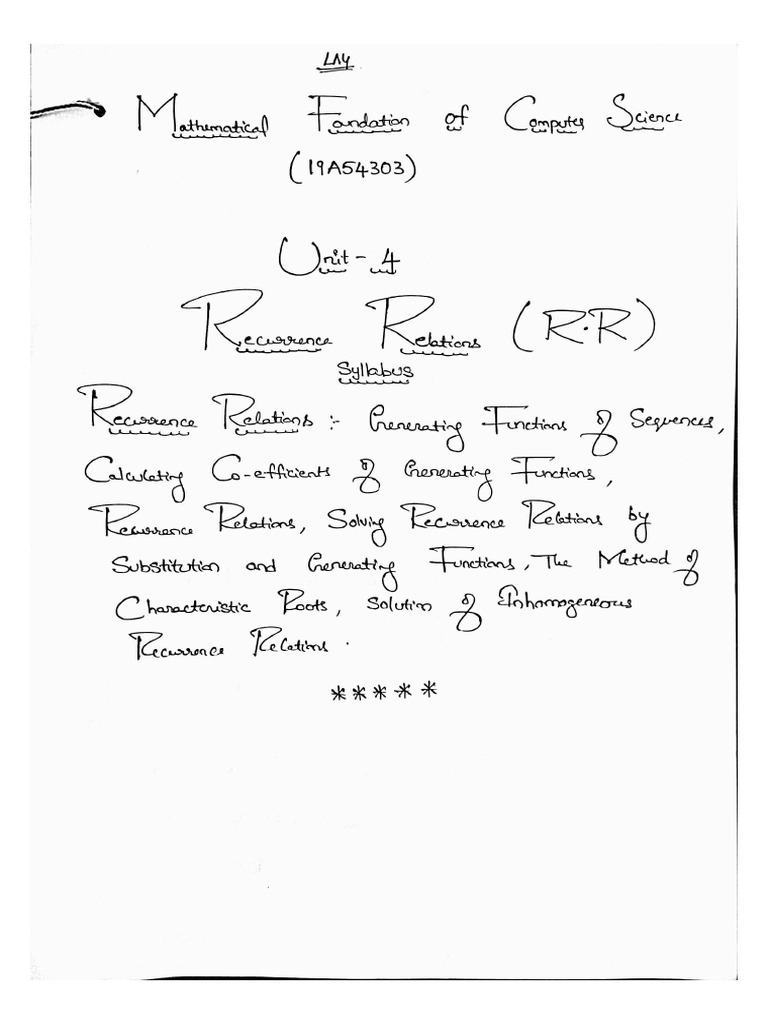 LN4
Mathematical Foundation of Computer Science
(19A54303)
Unit - 4
Recurrence Relations (R.R)
Syllabus
Recurrence Relations :- Generating Functions of Sequences,
Calculating Co-efficients of Generating Functions,
Recurrence Relations, Solving Recurrence Relations by
Substitution and Generating Functions, The Method of
Characteristic Roots, Solution of Inhomogeneous
Recurrence Relations.
*****